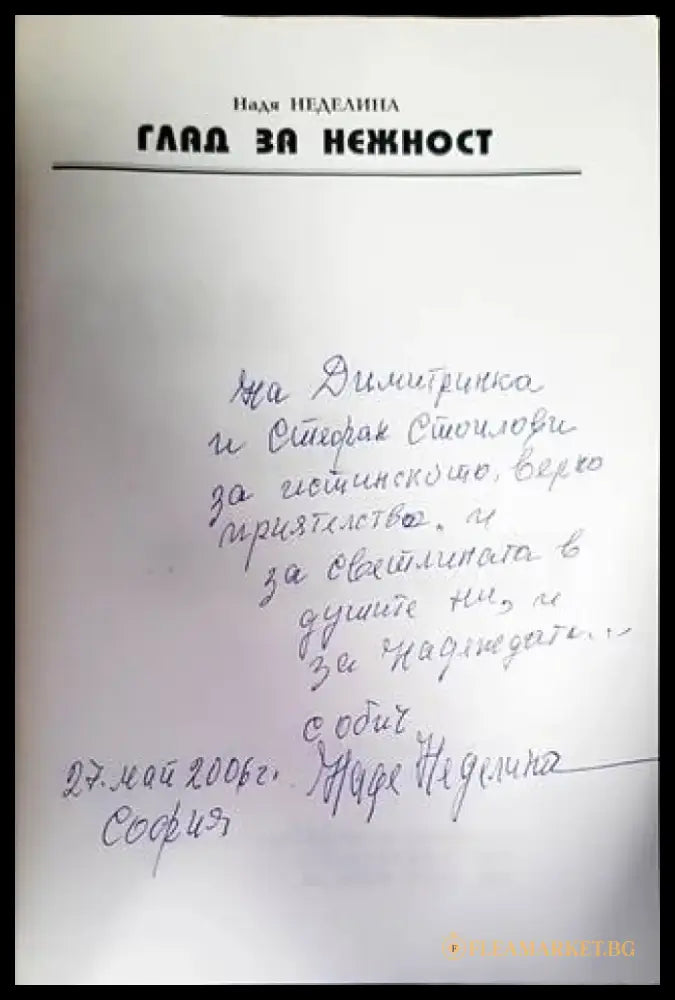 Надя НЕДЕЛИНА
ГЛАД ЗА НЕЖНОСТ
На Димитринка
и Стефан Стоилови
за истинското, верно
приятелство, и
за светлината в
душите ни, и
за надеждата...
с обич
27. май 2006 г. Надя Неделина
София
FLEAMARKET.BG